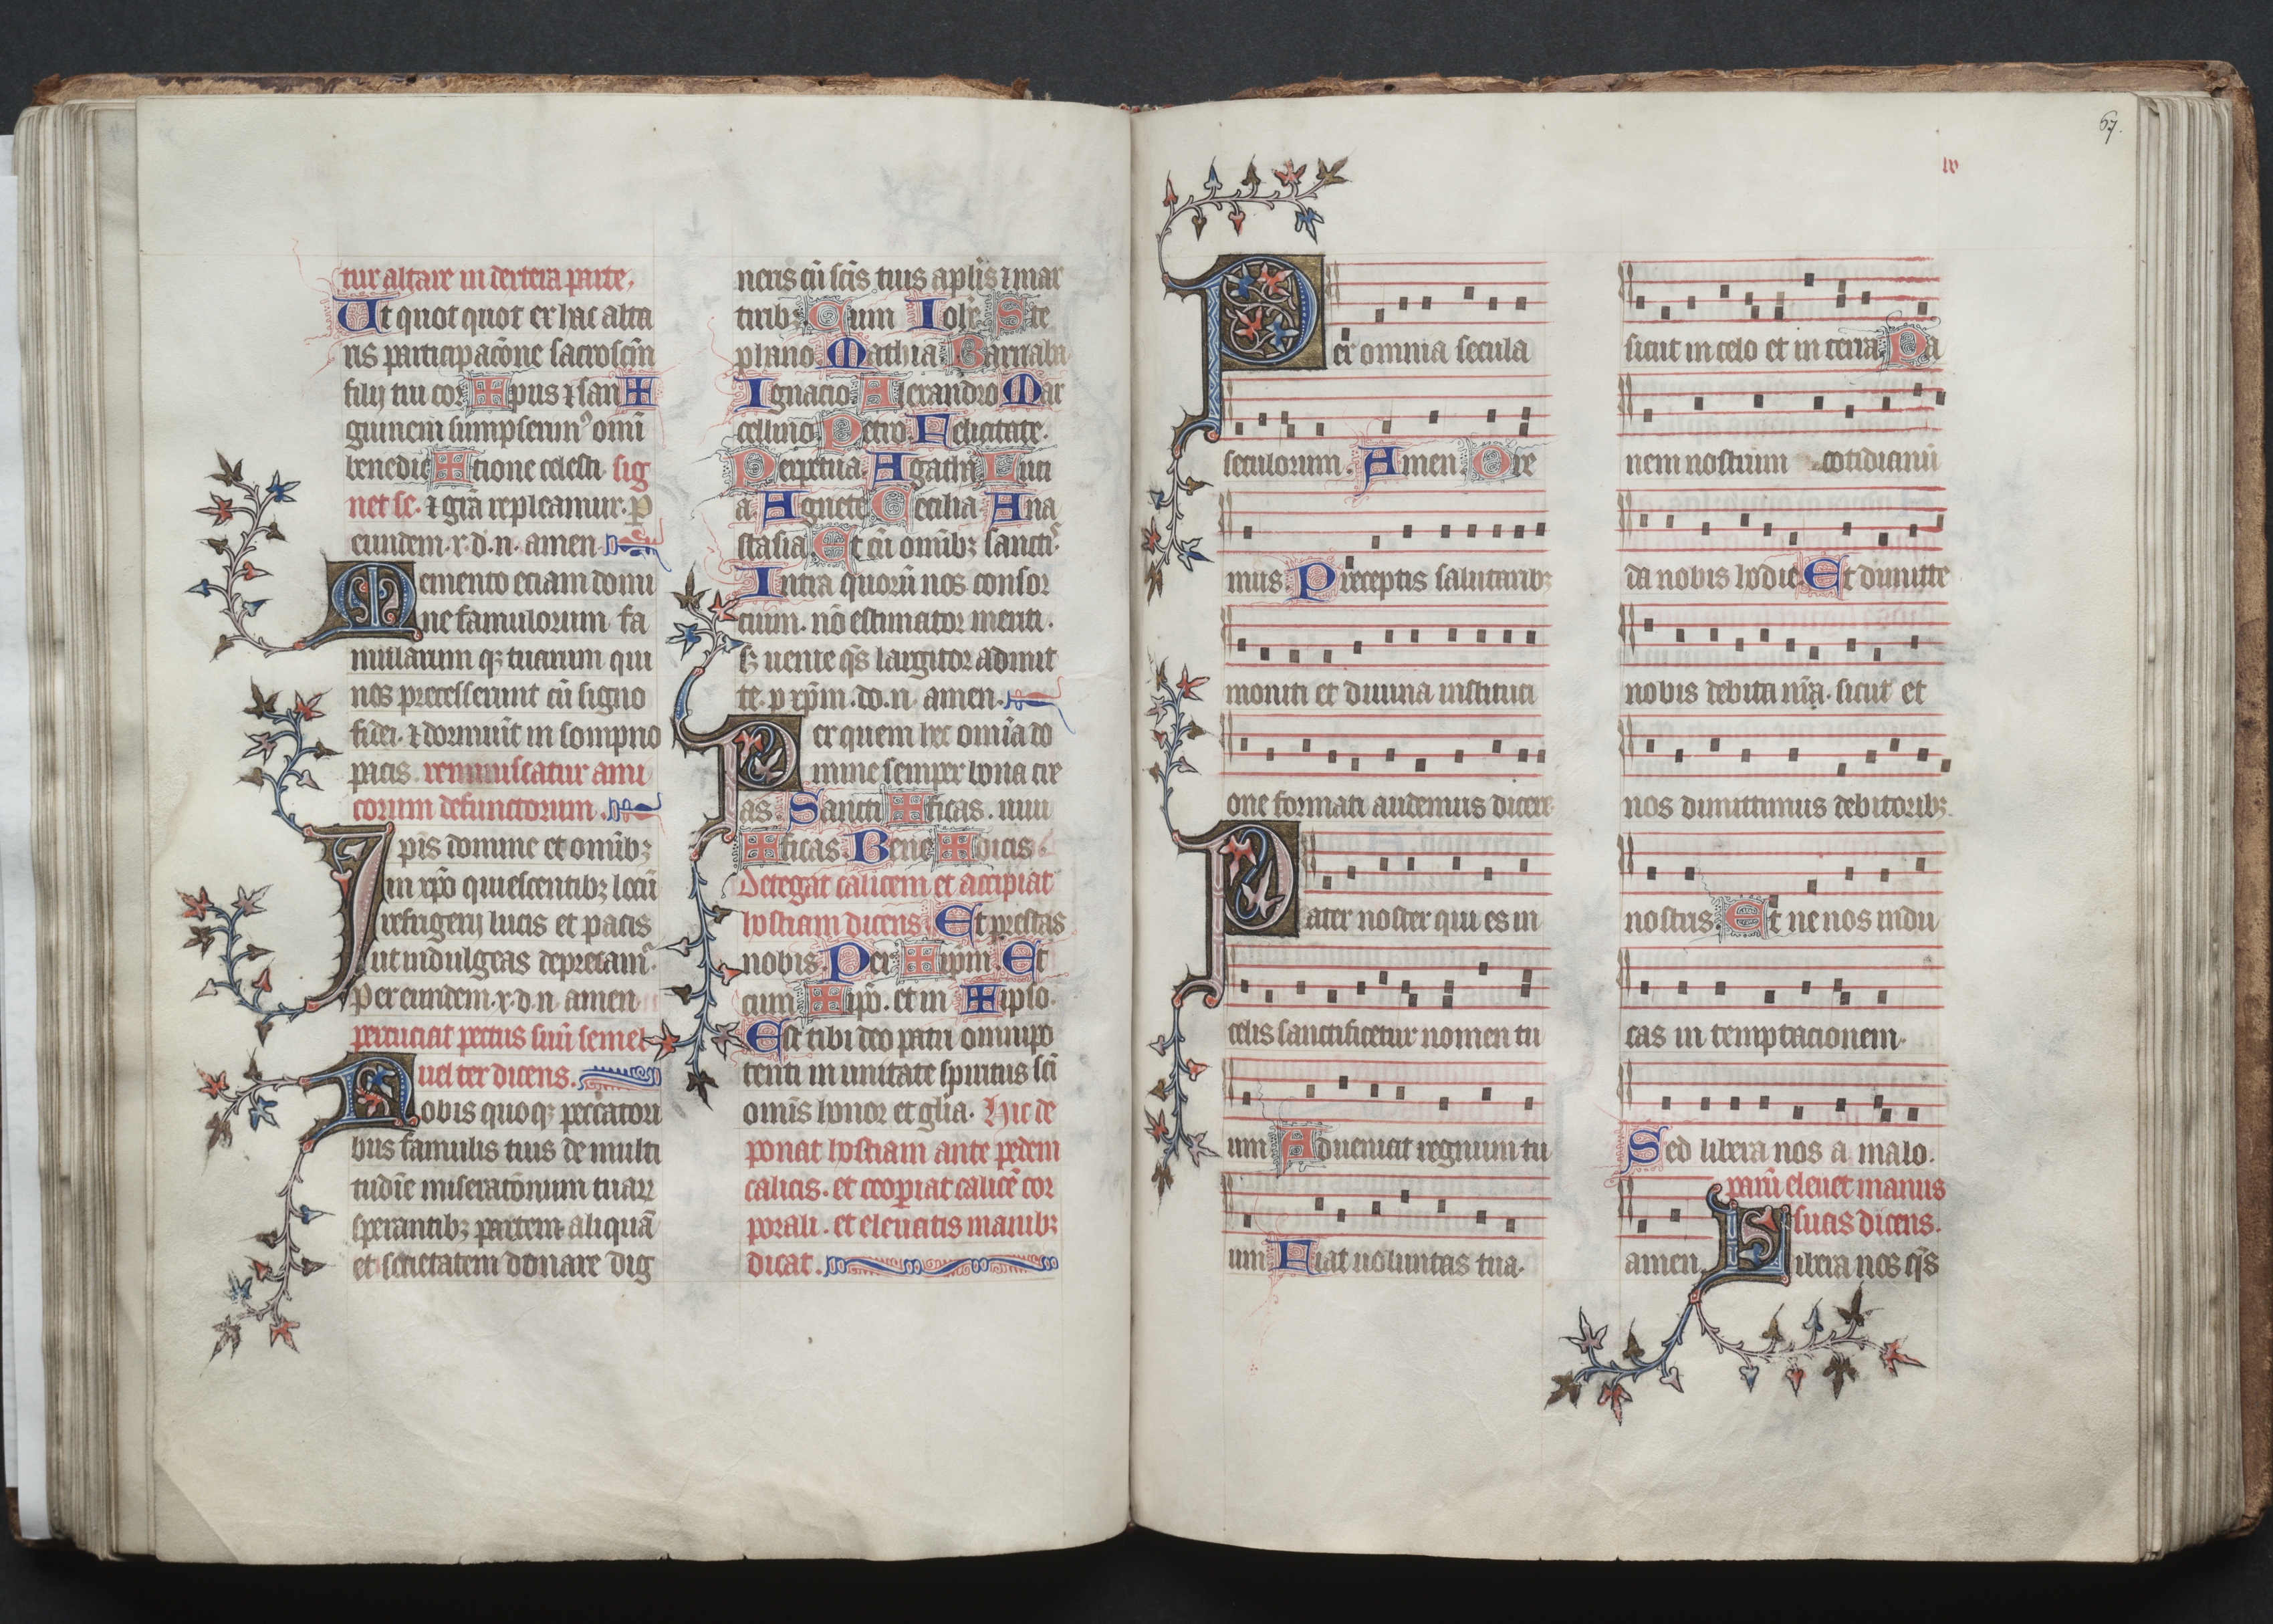 tur altare in dextera parte,
Ut quot quot ex hac alta
ris participac̄one sacroscm̄
filij tui cor✠pus ⁊ san✠
guinem sumpserimꝰ omī
benedic✠tione celesti. sig
net se. ⁊ gr̄a repleamur. p
eundem. x. d. n. amen.
Memento eciam domi
ne famulorum fa
mularum qꝫ tuarum qui
nos precesserunt cū signo
fidei. ⁊ dormiūt in sompno
pacis. reminiscatur ami
corum defunctorum.
Ipis domine et omīb;
in xp̄o quiescentib; locū
refrigerij lucis et pacis
ut indulgeas deprecam̄.
Per eundem. x. d. n. amen
percuciat pectus suū semel
uel ter dicens.
Nobis quoqꝫ peccatori
bus famulis tuis de multi
tudīe miserat̄onum tuaꝝ
sperantib; partem aliquā
et societatem donare dig
neris cū sc̄is tuis apl̄is ⁊ mar
tirib; Cum Ioh̄e Ste
phano Mathia Barnaba
Ignacio Alexandro Mar
cellino Petro Felicitate.
Perpetua Agatha Luci
a Agnete Cecilia Ana
stasia Et cū omīb; sanctis̄.
Intra quorū nos consor
cium. nō estimator meriti.
sꝫ uenie q̄s largitor admit
te. p xp̄m. do. n. amen.
Per quem hec omīa do
mine semper bona cre
as Sancti✠ficas. uiui
✠ficas Bene✠dicis
Detegat calicem et accipiat
hostiam dicens. Et prestas
nobis. Per ✠ ip̄m. Et
cum ✠ ip̄o. et in ✠ ipso.
Est tibi deo patri omnipo
tenti in unitate spiritus sc̄i
omīs honor et gl̄ia. Hic de
ponat hostiam ante pedem
calicis. et coopiat calicē cor
porali. et eleuatis manib;
dicat.
67.
Per omnia secula
seculorum. Amen. Ore
mus. Preceptis salutarib;
moniti et diuina instituti
one formati audemus dicere
Pater noster qui es in
celis sanctificetur nomen tu
um Adueniat regnum tu
um Fiat uoluntas tua.
sicut in celo et in terra Pa
nem nostrum cotidianū
da nobis hodie Et dimitte
nobis debita nr̄a. sicut et
nos dimittimus debitorib;
nostris. Et ne nos indu
cas in temptacionem.
Sed libera nos a malo.
parū eleuet manus
suas dicens.
amen. Libera nos q̄s